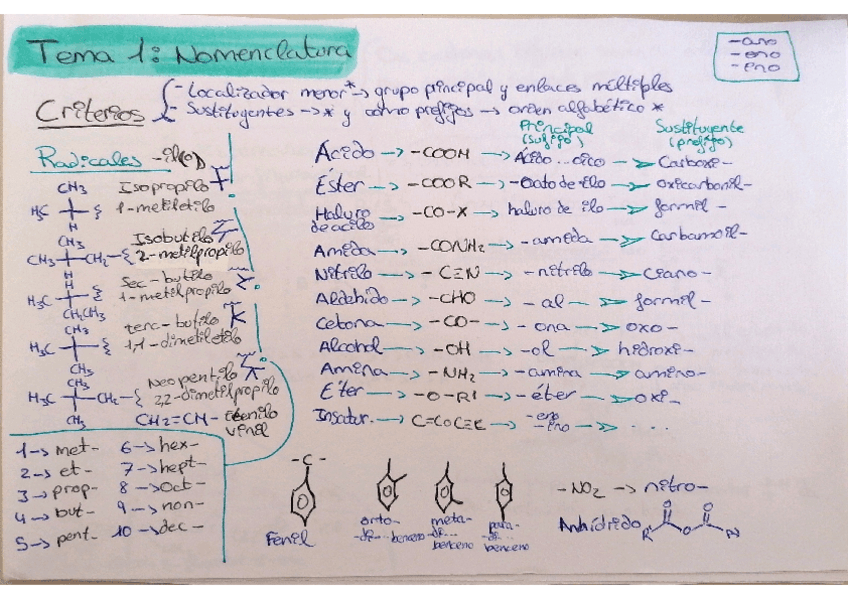 Tema 1: Nomenclatura
-ano
-eno
-ino
Criterios
- Localizador menor* → grupo principal y enlaces múltiples
- Sustituyentes → * y como prefijos → orden alfabético *
Radicales -il(o)
CH₃
H₃C
H
Isopropilo
1-metiletilo
CH₃
CH₃ CH₂
H
Isobutilo
2-metilpropilo
H
H₃C
CH₂CH₃
Sec-butilo
1-metilpropilo
CH₃
H₃C
CH₃
terc-butilo
1,1-dimetiletilo
CH₃
H₃C CH₂
CH₃
Neopentilo
2,2-dimetilpropilo
CH₂=CH- etenilo
vinil
Principal (sufijo) Sustituyente (prefijo)
Ácido → -COOH → Ácido...oico → Carboxi-
Éster → -COOR → -oato de ilo → oxicarbonil-
Haluro de acilo → -CO-X → haluro de ilo → formil-
Amida → -CONH₂ → -amida → carbamoil-
Nitrilo → -C≡N → -nitrilo → Ciano-
Aldehido → -CHO → -al → formil-
Cetona → -CO- → -ona → oxo-
Alcohol → -OH → -ol → hidroxi-
Amina → -NH₂ → -amina → amino-
Éter → -O-R' → -éter → oxi-
Insatur. → C=C o C≡C → -eno -ino → ....
1 → met- 6 → hex-
2 → et- 7 → hept-
3 → prop- 8 → oct-
4 → but- 9 → non-
5 → pent- 10 → dec-
-C-
Fenil
orto-
-di-... benceno
meta-
-di-...
benceno
para-
-di-...
benceno
-NO₂ → nitro-
Anhídrido
R O O O R